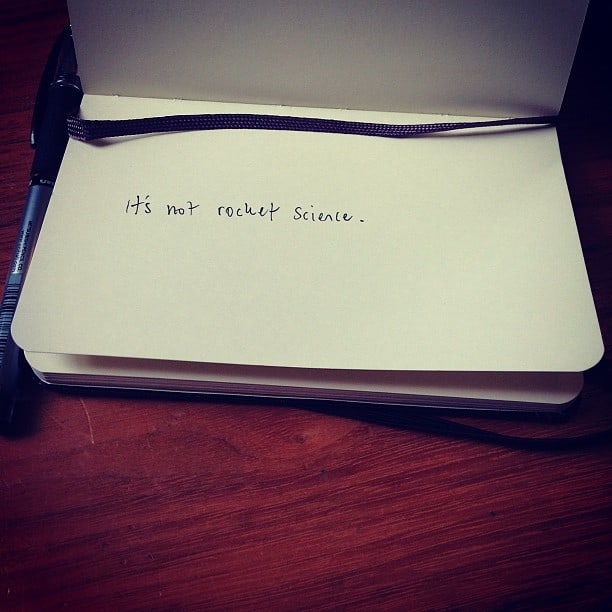 It's not rocket science.